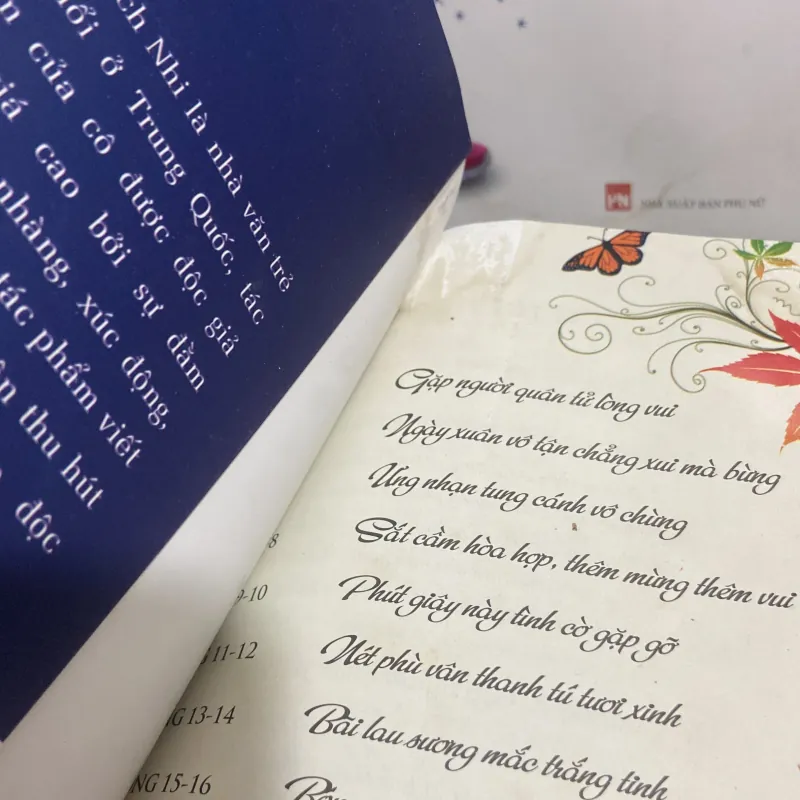 ch Nhi là nhà văn trẻ
ở Trung Quốc, tác
của cô được độc giả
cao bởi sự đằm
nhàng, xúc động,
tác phẩm viết
thu hút
độc
NHÀ XUẤT BẢN PHỤ NỮ
Gặp người quân tử lòng vui
Ngày xuân vô tận chẳng xui mà bừng
Ưng nhạn tung cánh vô chừng
8 Sắt cầm hòa hợp, thêm mừng thêm vui
9-10 Phút giây này tình cờ gặp gỡ
11-12 Nét phù vân thanh tú tươi xinh
NG 13-14 Bãi lau sương mắc trắng tinh
NG 15-16